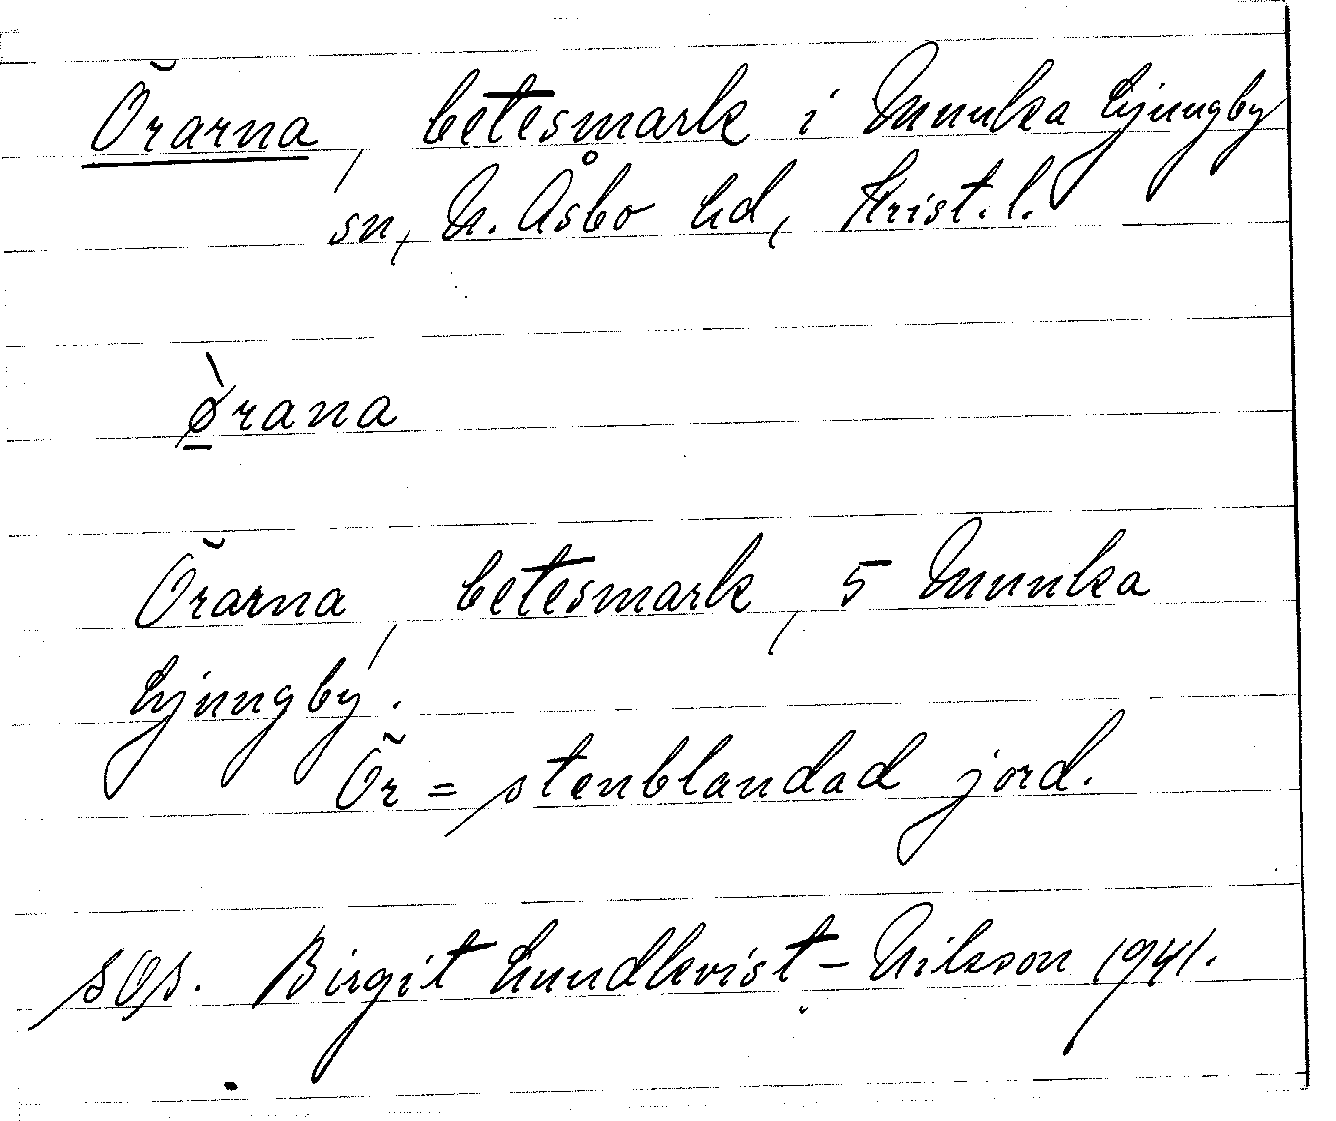 Örarna, betesmark i Munka Ljungby
sn, N. Åsbo hd, Krist. l.
ø̀rana
Örarna, betesmark, 5 Munka
Ljungby.
Ör = stenblandad jord.
Birgit Lundkvist-Nilsson 1941.